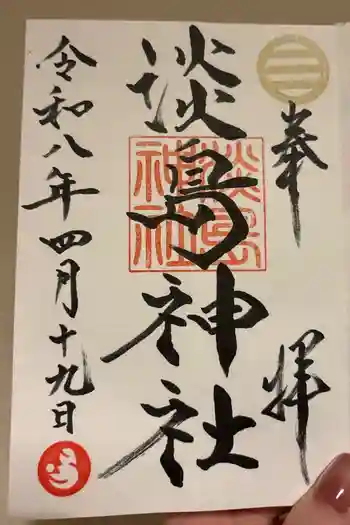 奉拝
淡島神社
淡島
神社
令和八年四月十九日